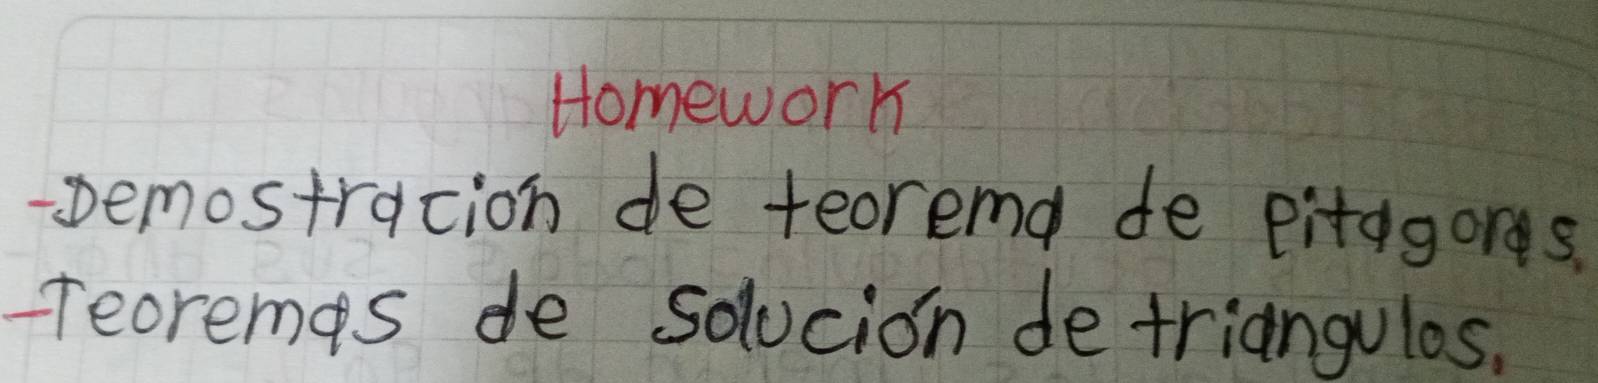 Homework
-Demostración de teorema de Pitagoras.
-Teoremas de solución de triangulos.